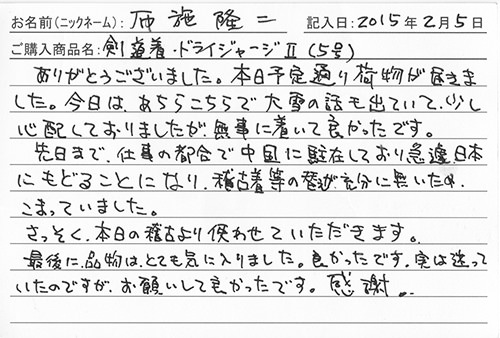 お名前(ニックネーム): 布施隆二 記入日: 2015年2月5日
ご購入商品名: 剣道着・ドライジャージⅡ (5号)
ありがとうございました。本日予定通り荷物が届きま
した。今日は、あちらこちらで大雪の話も出ていて、少し
心配しておりましたが、無事に着いて良かったです。
先日まで、仕事の都合で中国に駐在しており急遽、日本
にもどることになり、稽古着等の替が充分に無いため、
こまっていました。
さっそく、本日の稽古より使わせていただきます。
最後に、品物は、とても気に入りました。良かったです。実は迷って
いたのですが、お願いして良かったです。感謝。